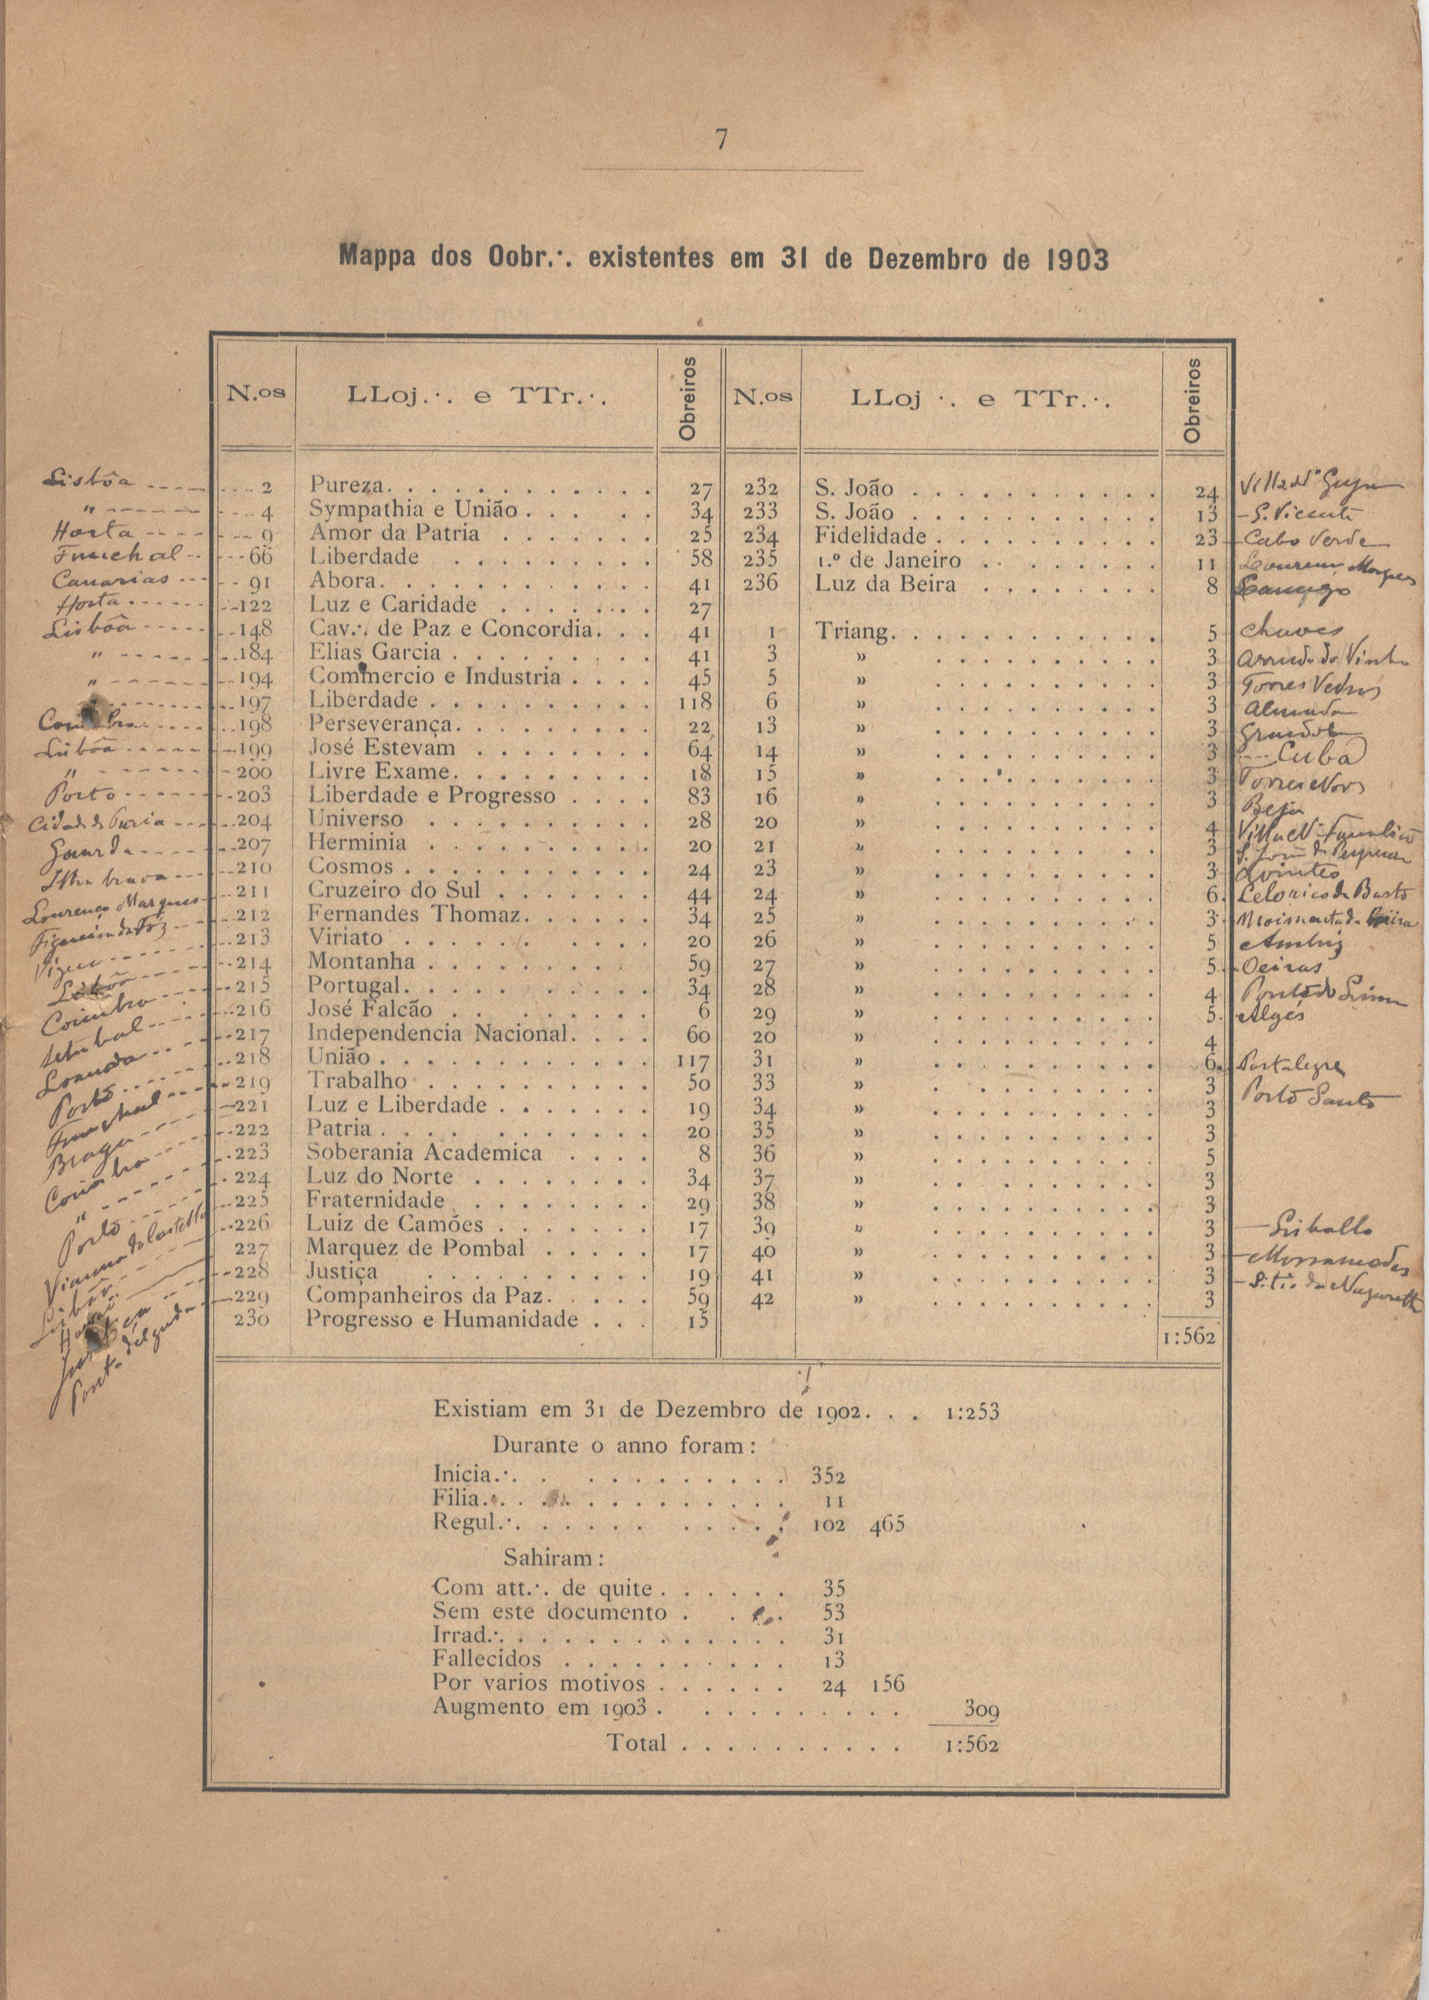 7
Mappa dos Oobr.∙. existentes em 31 de Dezembro de 1903
N.os LLoj.∙. e TTr.∙. Obreiros N.os LLoj ∙. e TTr.∙. Obreiros
Lisbôa 2 Pureza 27 232 S. João 24
" 4 Sympathia e União 34 233 S. João 13 S. Vicente
Horta 9 Amor da Patria 25 234 Fidelidade 23 Cabo Verde
Funchal 66 Liberdade 58 235 1.º de Janeiro 11 Lourenço Marques
Canarias 91 Abora 41 236 Luz da Beira 8
Horta 122 Luz e Caridade 27
Lisbôa 148 Cav.∙. de Paz e Concordia 41 1 Triang. 5 Chaves
" 184 Elias Garcia 41 3 » 3 Arruda do Vinho
" 194 Commercio e Industria 45 5 » 3 Torres Vedras
197 Liberdade 118 6 » 3 Almada
Coimbra 198 Perseverança 22 13 » 3 Grandola
Lisbôa 199 José Estevam 64 14 » 3 Cuba
" 200 Livre Exame 18 15 » 3
Porto 203 Liberdade e Progresso 83 16 » 3 Beja
Cidade da Praia 204 Universo 28 20 » 4
Guarda 207 Herminia 20 21 » 3
Ilha brava 210 Cosmos 24 23 » 3 Loures
Lourenço Marques 211 Cruzeiro do Sul 44 24 » 6 Celorico de Basto
Figueira da Foz 212 Fernandes Thomaz 34 25 » 3 Moimenta da Beira
Vizeu 213 Viriato 20 26 » 5 Ambriz
Lisbôa 214 Montanha 59 27 » 5 Oeiras
Coimbra 215 Portugal 34 28 » 4 Ponte do Lima
Setubal 216 José Falcão 6 29 » 5 Algés
Loanda 217 Independencia Nacional 60 20 » 4
Porto 218 União 117 31 » 6 Portalegre
Funchal 219 Trabalho 50 33 » 3 Porto Santo
Braga 221 Luz e Liberdade 19 34 » 3
Coimbra 222 Patria 20 35 » 3
" 223 Soberania Academica 8 36 » 5
Porto 224 Luz do Norte 34 37 » 3
Vianna do Castello 225 Fraternidade 29 38 » 3
Lisbôa 226 Luiz de Camões 17 39 » 3
227 Marquez de Pombal 17 40 » 3 Mossamedes
228 Justiça 19 41 » 3 Sitio da Nazareth
Ponta delgada 229 Companheiros da Paz 59 42 » 3
230 Progresso e Humanidade 15
1:562
Existiam em 31 de Dezembro de 1902. . . 1:253
Durante o anno foram:
Inicia.∙. 352
Filia.∙. 11
Regul.∙. 102 465
Sahiram:
Com att.∙. de quite 35
Sem este documento 53
Irrad.∙. 31
Fallecidos 13
Por varios motivos 24 156
Augmento em 1903 309
Total 1:562